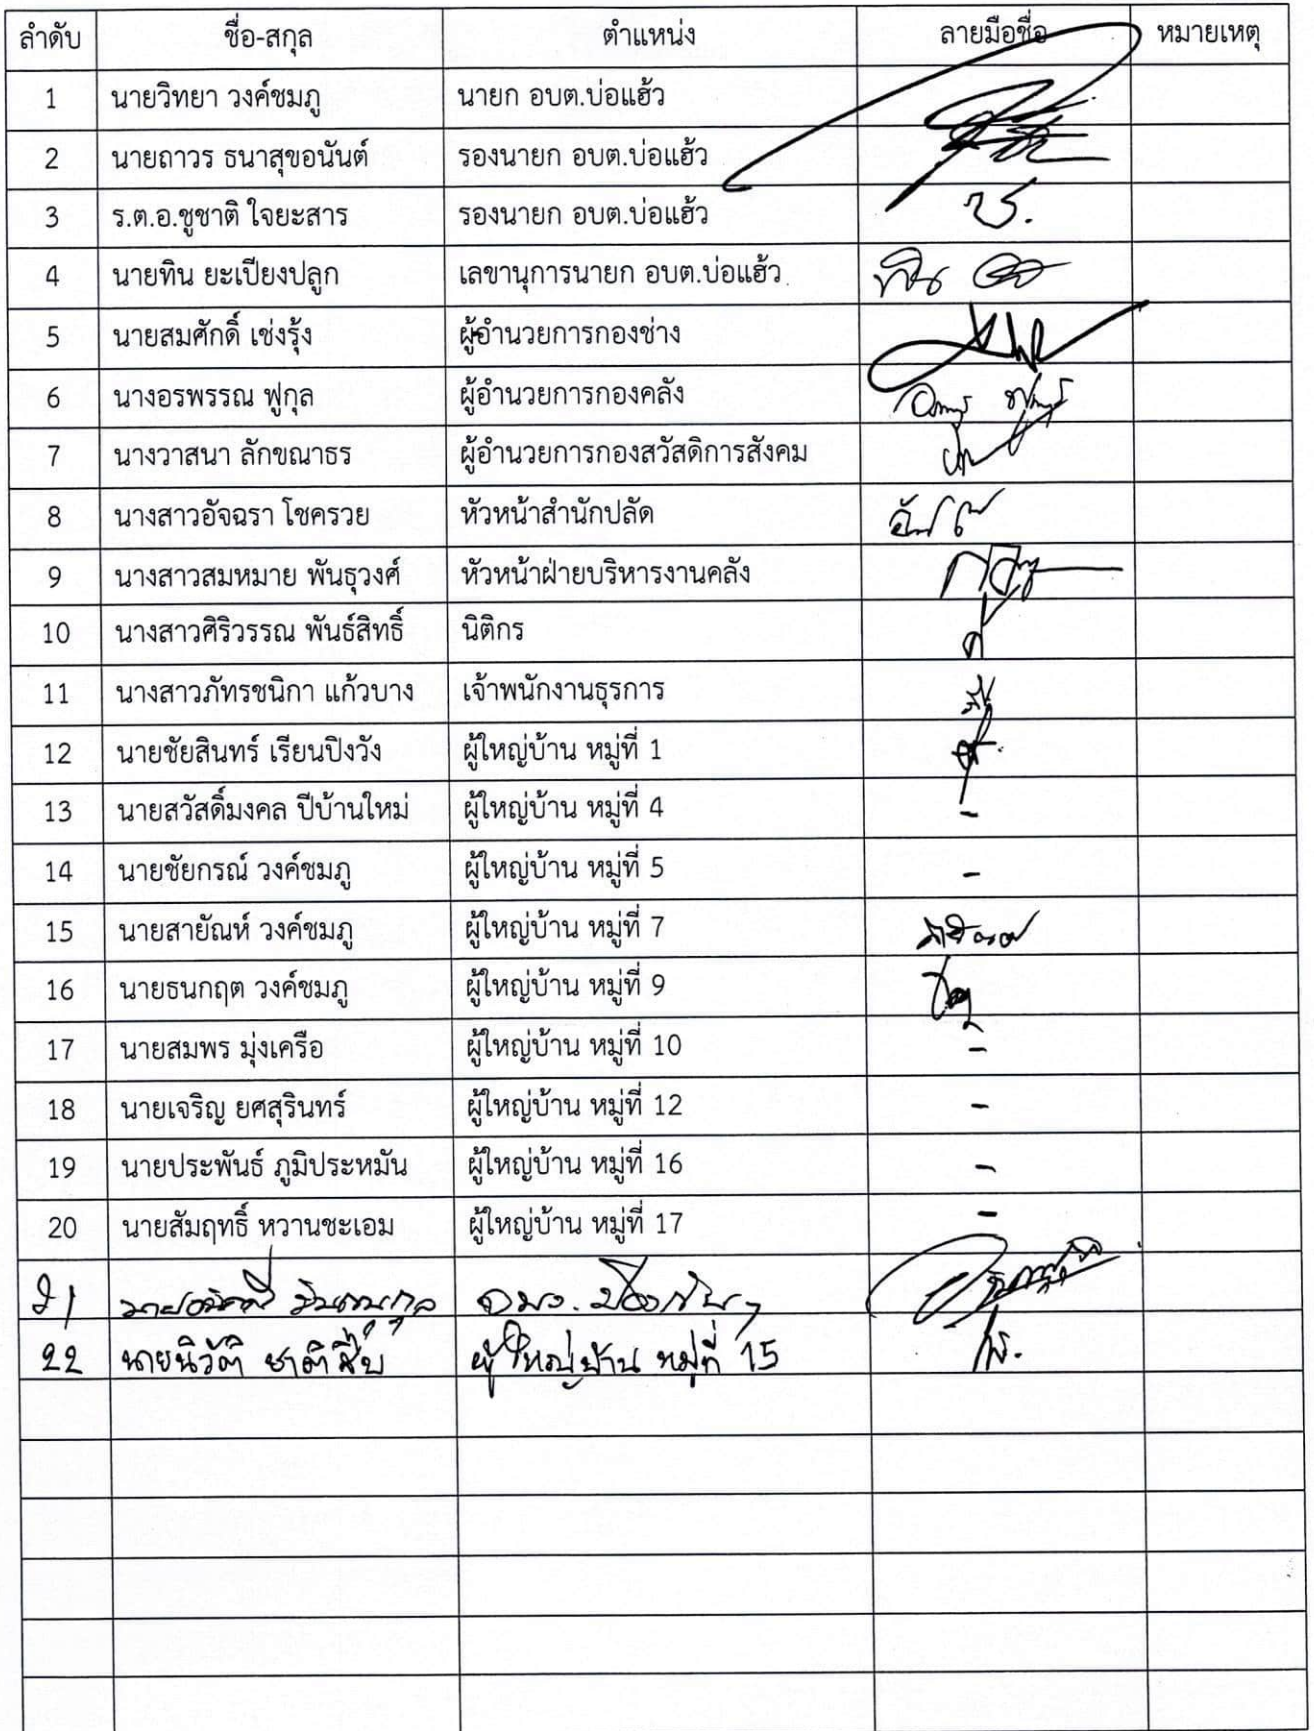 ลำดับ ชื่อ-สกุล ตำแหน่ง ลายมือชื่อ หมายเหตุ
1 นายวิทยา วงค์ชมภู นายก อบต.บ่อแฮ้ว
2 นายถาวร ธนาสุขอนันต์ รองนายก อบต.บ่อแฮ้ว
3 ร.ต.อ.ชูชาติ ใจยะสาร รองนายก อบต.บ่อแฮ้ว
4 นายทิน ยะเปียงปลูก เลขานุการนายก อบต.บ่อแฮ้ว
5 นายสมศักดิ์ เช่งรุ้ง ผู้อำนวยการกองช่าง
6 นางอรพรรณ ฟูกุล ผู้อำนวยการกองคลัง
7 นางวาสนา ลักขณาธร ผู้อำนวยการกองสวัสดิการสังคม
8 นางสาวอัจฉรา โชครวย หัวหน้าสำนักปลัด
9 นางสาวสมหมาย พันธุวงศ์ หัวหน้าฝ่ายบริหารงานคลัง
10 นางสาวศิริวรรณ พันธ์สิทธิ์ นิติกร
11 นางสาวภัทรชนิกา แก้วบาง เจ้าพนักงานธุรการ
12 นายชัยสินทร์ เรียนปิงวัง ผู้ใหญ่บ้าน หมู่ที่ 1
13 นายสวัสดิ์มงคล ปีบ้านใหม่ ผู้ใหญ่บ้าน หมู่ที่ 4 -
14 นายชัยกรณ์ วงค์ชมภู ผู้ใหญ่บ้าน หมู่ที่ 5 -
15 นายสายัณห์ วงค์ชมภู ผู้ใหญ่บ้าน หมู่ที่ 7
16 นายธนกฤต วงค์ชมภู ผู้ใหญ่บ้าน หมู่ที่ 9
17 นายสมพร มุ่งเครือ ผู้ใหญ่บ้าน หมู่ที่ 10 -
18 นายเจริญ ยศสุรินทร์ ผู้ใหญ่บ้าน หมู่ที่ 12 -
19 นายประพันธ์ ภูมิประหมัน ผู้ใหญ่บ้าน หมู่ที่ 16 -
20 นายสัมฤทธิ์ หวานชะเอม ผู้ใหญ่บ้าน หมู่ที่ 17 -
21
22 นายนิวัติ ชาติสืบ ผู้ใหญ่บ้าน หมู่ที่ 15